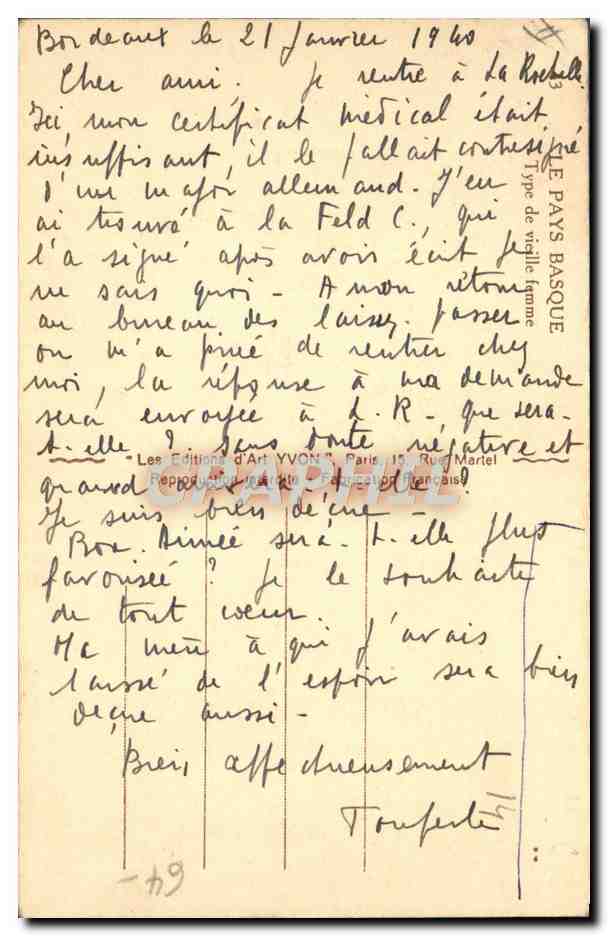 Bordeaux le 21 Janvier 1940
Cher ami. Je rentre à La Rochelle.
Ici, mon certificat médical était
insuffisant, il le fallait contresigné
d'un major allemand. J'en
ai trouvé à la Feld C, qui
l'a signé après avoir écrit je
ne sais quoi - A mon retour
au bureau des laissez-passer
on m'a prié de rentrer chez
moi, la réponse à ma demande
sera envoyée à L. R - que sera-
t-elle ? Sans doute négative et
quand
Je suis bien déçue -
Bon. Aimée sera-t-elle plus
favorisée ? Je le souhaite
de tout coeur.
Ma mère à qui j'avais
laissé de l'espoir sera bien
déçue aussi -
Bien affectueusement
LE PAYS BASQUE
Type de vieille femme
Les Editions d'Art YVON, Paris, 15, Rue Martel
Reproduction interdite - Fabrication Française
CPAPHIL
64 -
14